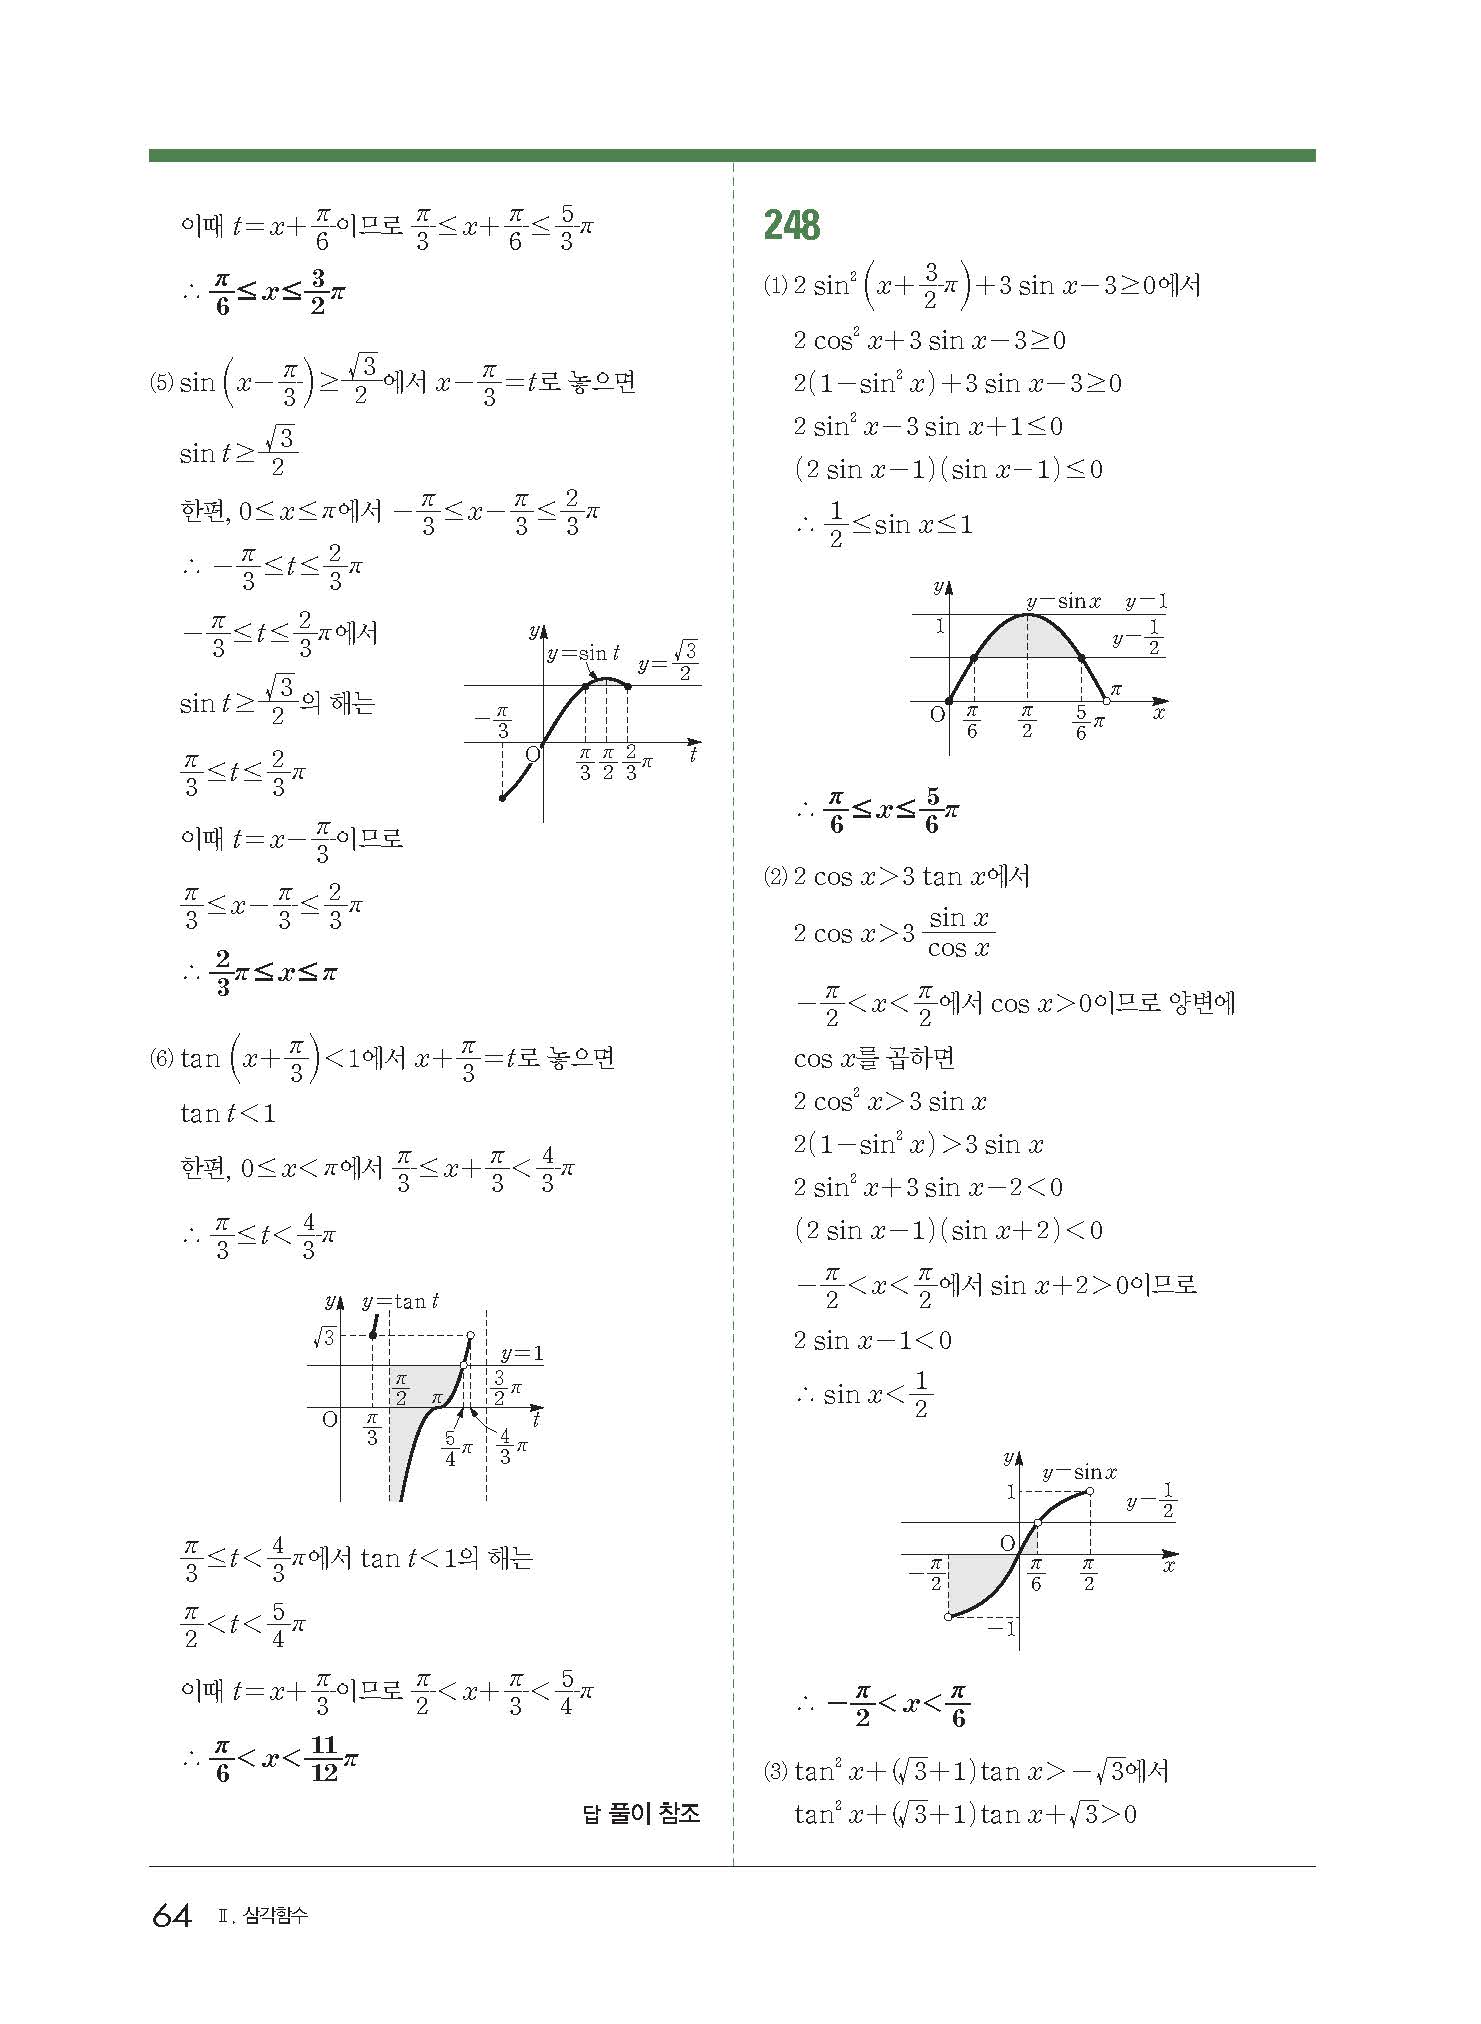 이때 t=x+π/6이므로 π/3≤x+π/6≤5/3π
∴ π/6≤x≤3/2π
⑸ sin(x-π/3)≥√3/2에서 x-π/3=t로 놓으면
sin t≥√3/2
한편, 0≤x≤π에서 -π/3≤x-π/3≤2/3π
∴ -π/3≤t≤2/3π
-π/3≤t≤2/3π에서
sin t≥√3/2의 해는
π/3≤t≤2/3π
y
y=sin t
y=√3/2
-π/3
O π/3 π/2 2/3π t
이때 t=x-π/3이므로
π/3≤x-π/3≤2/3π
∴ 2/3π≤x≤π
⑹ tan(x+π/3)<1에서 x+π/3=t로 놓으면
tan t<1
한편, 0≤x<π에서 π/3≤x+π/3<4/3π
∴ π/3≤t<4/3π
y y=tan t
√3
y=1
π/2 π 3/2π
O π/3 t
5/4π 4/3π
π/3≤t<4/3π에서 tan t<1의 해는
π/2<t<5/4π
이때 t=x+π/3이므로 π/2<x+π/3<5/4π
∴ π/6<x<11/12π
답 풀이 참조
248
⑴ 2 sin²(x+3/2π)+3 sin x-3≥0에서
2 cos² x+3 sin x-3≥0
2(1-sin² x)+3 sin x-3≥0
2 sin² x-3 sin x+1≤0
(2 sin x-1)(sin x-1)≤0
∴ 1/2≤sin x≤1
y
y=sin x y=1
1
y=1/2
π
O π/6 π/2 5/6π x
∴ π/6≤x≤5/6π
⑵ 2 cos x>3 tan x에서
2 cos x>3 sin x/cos x
-π/2<x<π/2에서 cos x>0이므로 양변에
cos x를 곱하면
2 cos² x>3 sin x
2(1-sin² x)>3 sin x
2 sin² x+3 sin x-2<0
(2 sin x-1)(sin x+2)<0
-π/2<x<π/2에서 sin x+2>0이므로
2 sin x-1<0
∴ sin x<1/2
y
y=sin x
1
y=1/2
O
-π/2 π/6 π/2 x
-1
∴ -π/2<x<π/6
⑶ tan² x+(√3+1)tan x>-√3에서
tan² x+(√3+1)tan x+√3>0
64 Ⅱ. 삼각함수